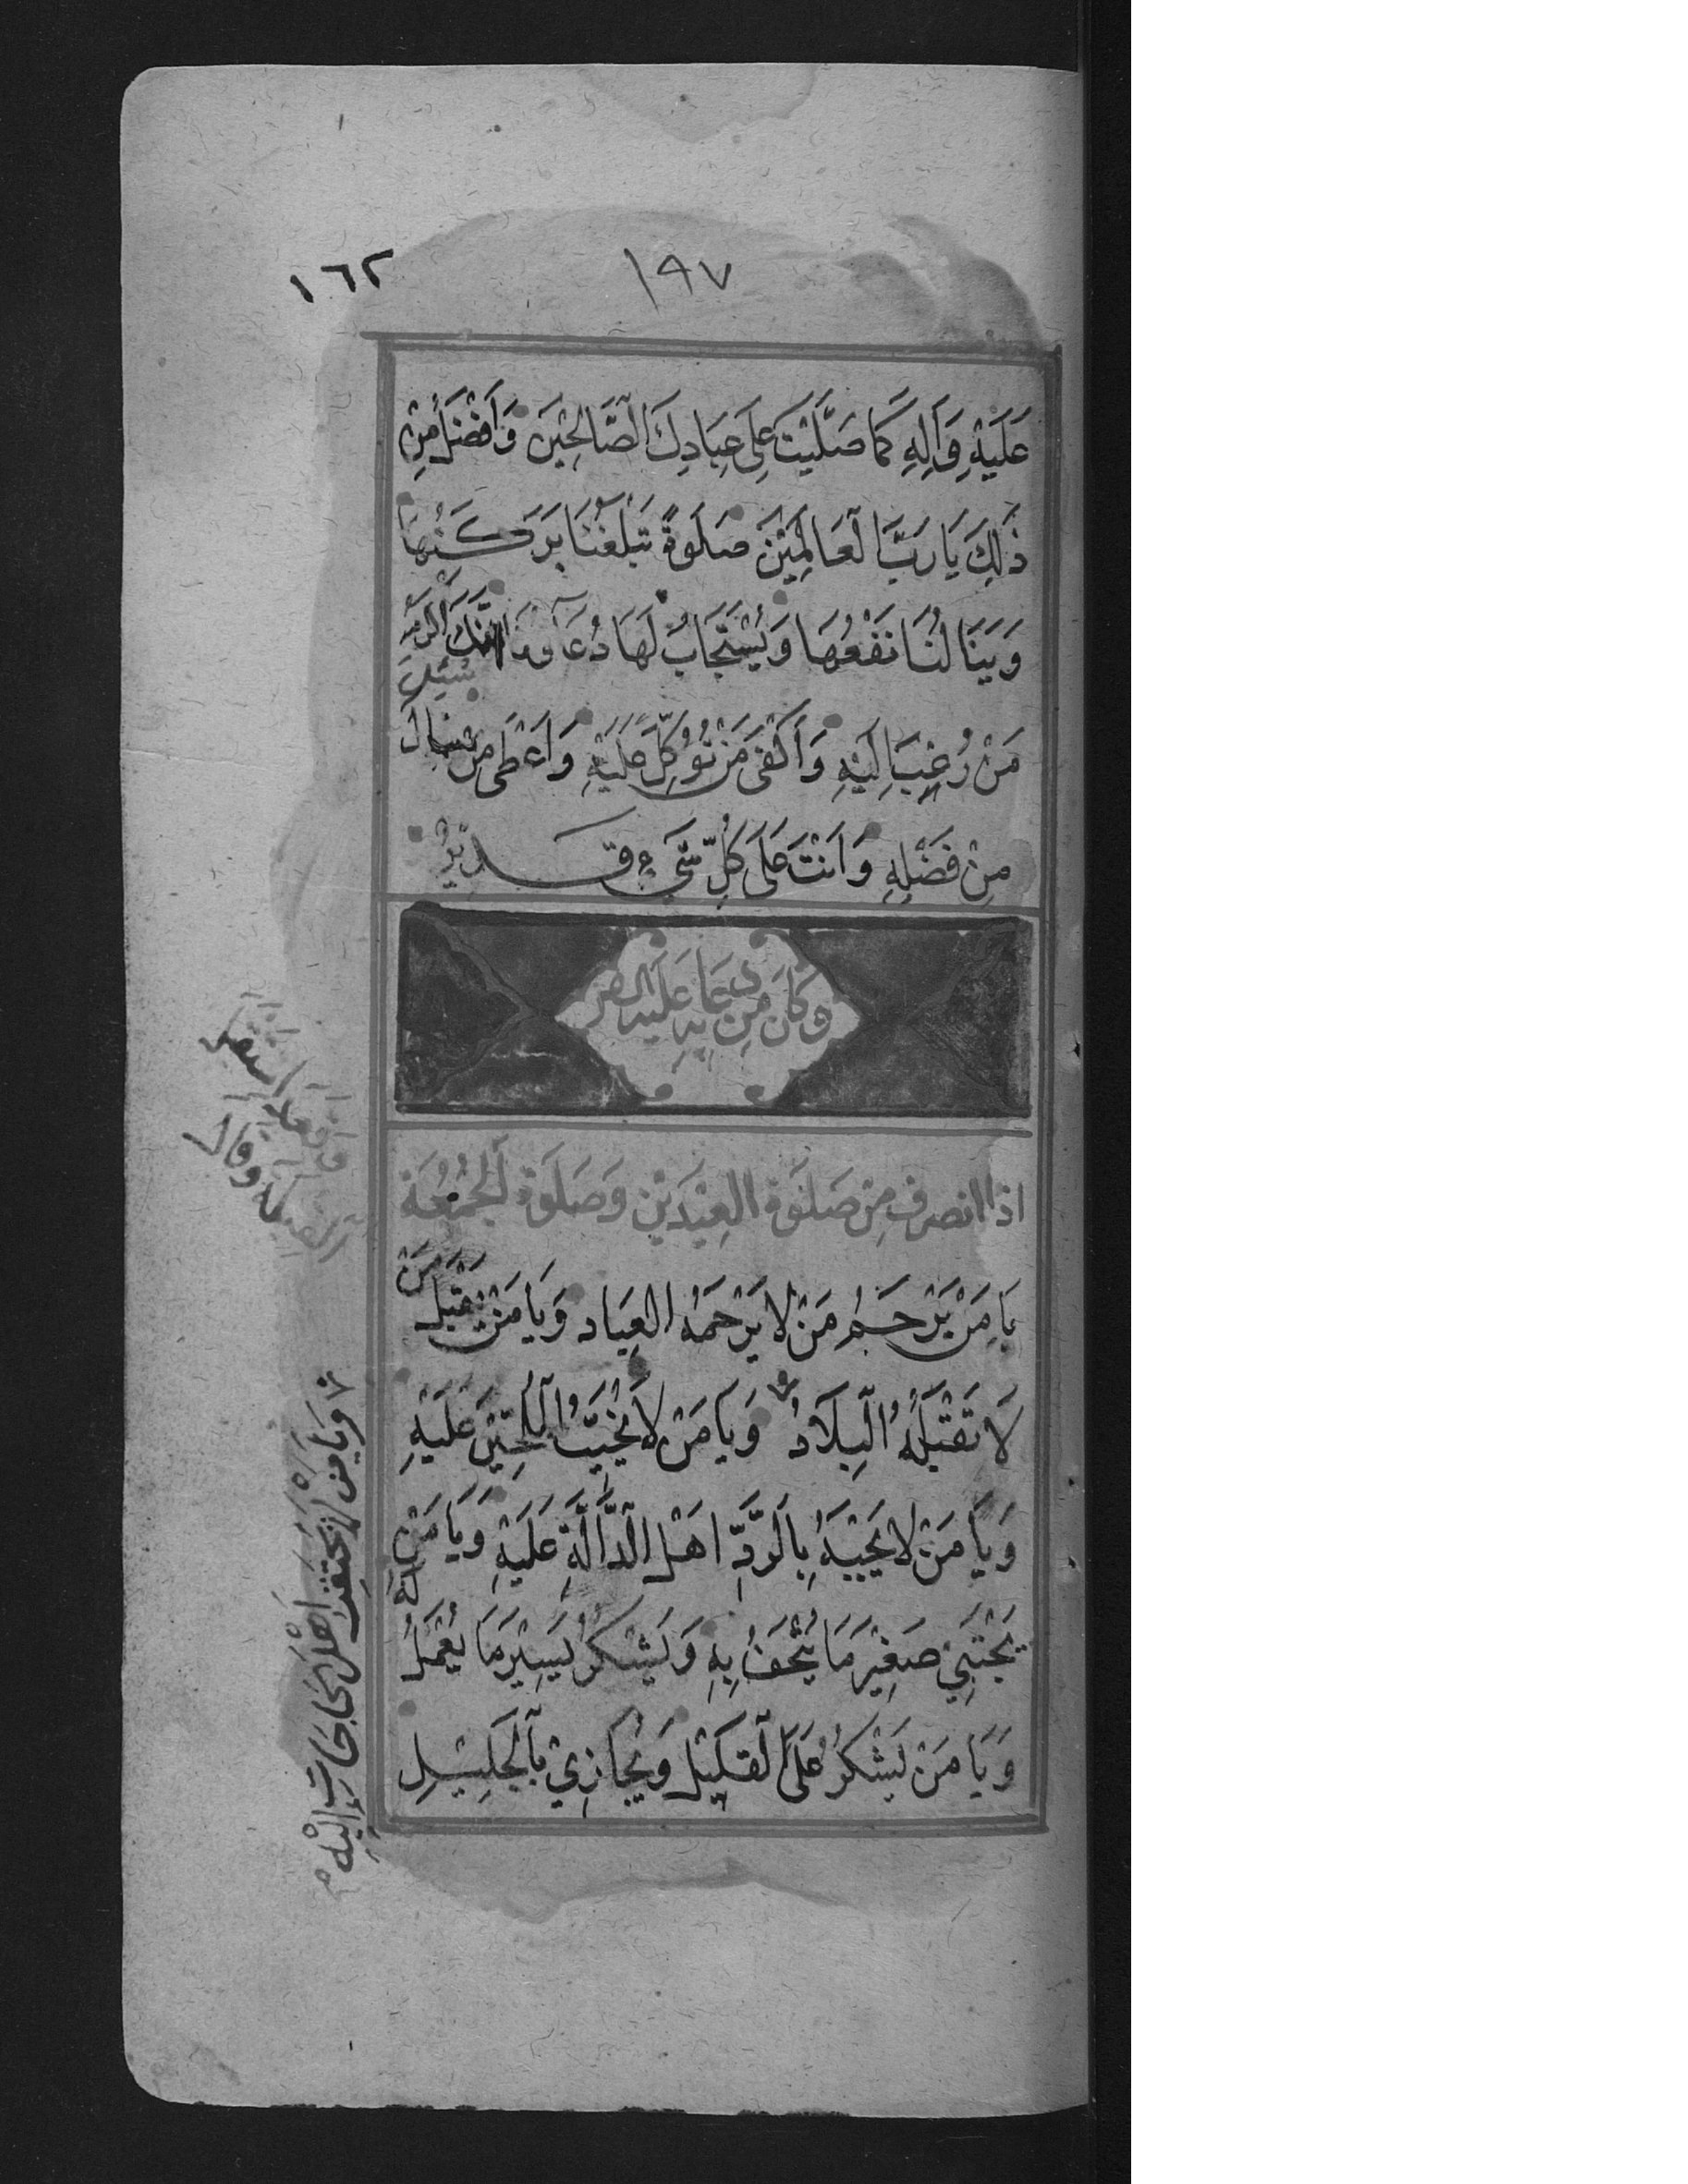 ١٩٧
١٦٢
عَلَيْهِ وَآلِهِ كَمَا صَلَّيْتَ عَلَى عِبَادِكَ الصَّالِحِيْنَ وَاَفْضَلَ مِنْ
ذٰلِكَ يَا رَبَّ الْعَالَمِيْنَ صَلٰوةً تَبْلُغُنَا بَرَكَتُهَا
وَيَنَالُنَا نَفْعُهَا وَيُسْتَجَابُ لَهَا دُعَاؤنَا اِنَّكَ اَكْرَمُ
مَنْ رُغِبَ اِلَيْهِ وَاَكْفٰى مَنْ تُوُكِّلَ عَلَيْهِ وَاَعْطٰى مَنْ سُئِلَ
مِنْ فَضْلِهِ وَاَنْتَ عَلٰى كُلِّ شَيْءٍ قَدِيْرٌ
وَكَانَ مِنْ دُعَائِهِ عَلَيْهِ
اذا انصرف مِنْ صَلٰوةِ العِيْدَيْنِ وَصَلٰوةِ الْجُمُعَة
يَا مَنْ يَرْحَمُ مَنْ لَا يَرْحَمُهُ العِبَاد وَيَا مَنْ يَقْبَلُ مَنْ
لَا تَقْبَلُهُ الْبِلَادُ وَيَا مَنْ لَا يُخَيِّبُ الْمُلِحِّيْنَ عَلَيْهِ
وَيَا مَنْ لَا يَجْبَهُ بِالرَّدِّ اَهْلَ الدَّالَّةِ عَلَيْهِ وَيَا مَنْ
يَجْتَبِيْ صَغِيْرَ مَا يُتْحَفُ بِهِ وَيَشْكُرُ يَسِيْرَ مَا يُعْمَلُ لَهُ
وَيَا مَنْ يَشْكُرُ عَلَى الْقَلِيْلِ وَيُجَازِيْ بِالْجَلِيْلِ
وَيَا مَنْ لَا يَحْتَقِرُ اَهْلَ الْحَاجَاتِ اِلَيْهِ